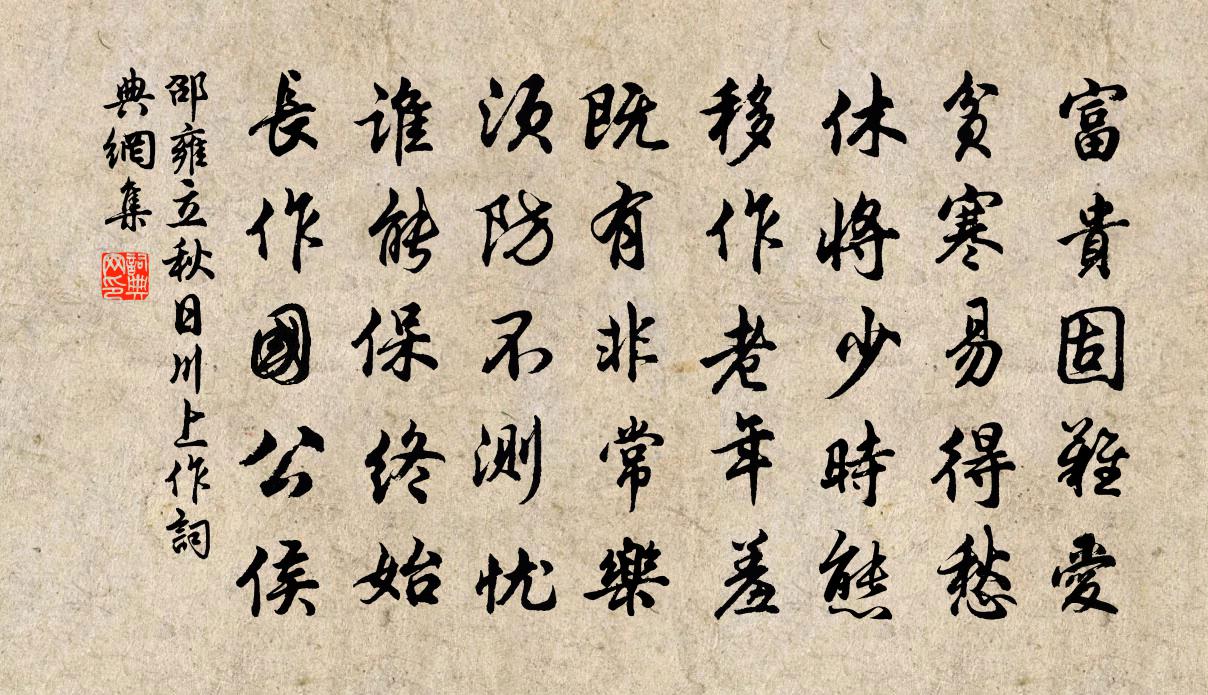 富貴固難愛
貧寒易得愁
休將少時態
移作老年羞
既有非常樂
須防不測忧
誰能保終始
長作國公侯
邵雍立秋日川上作詞
典網集
詞典
网印